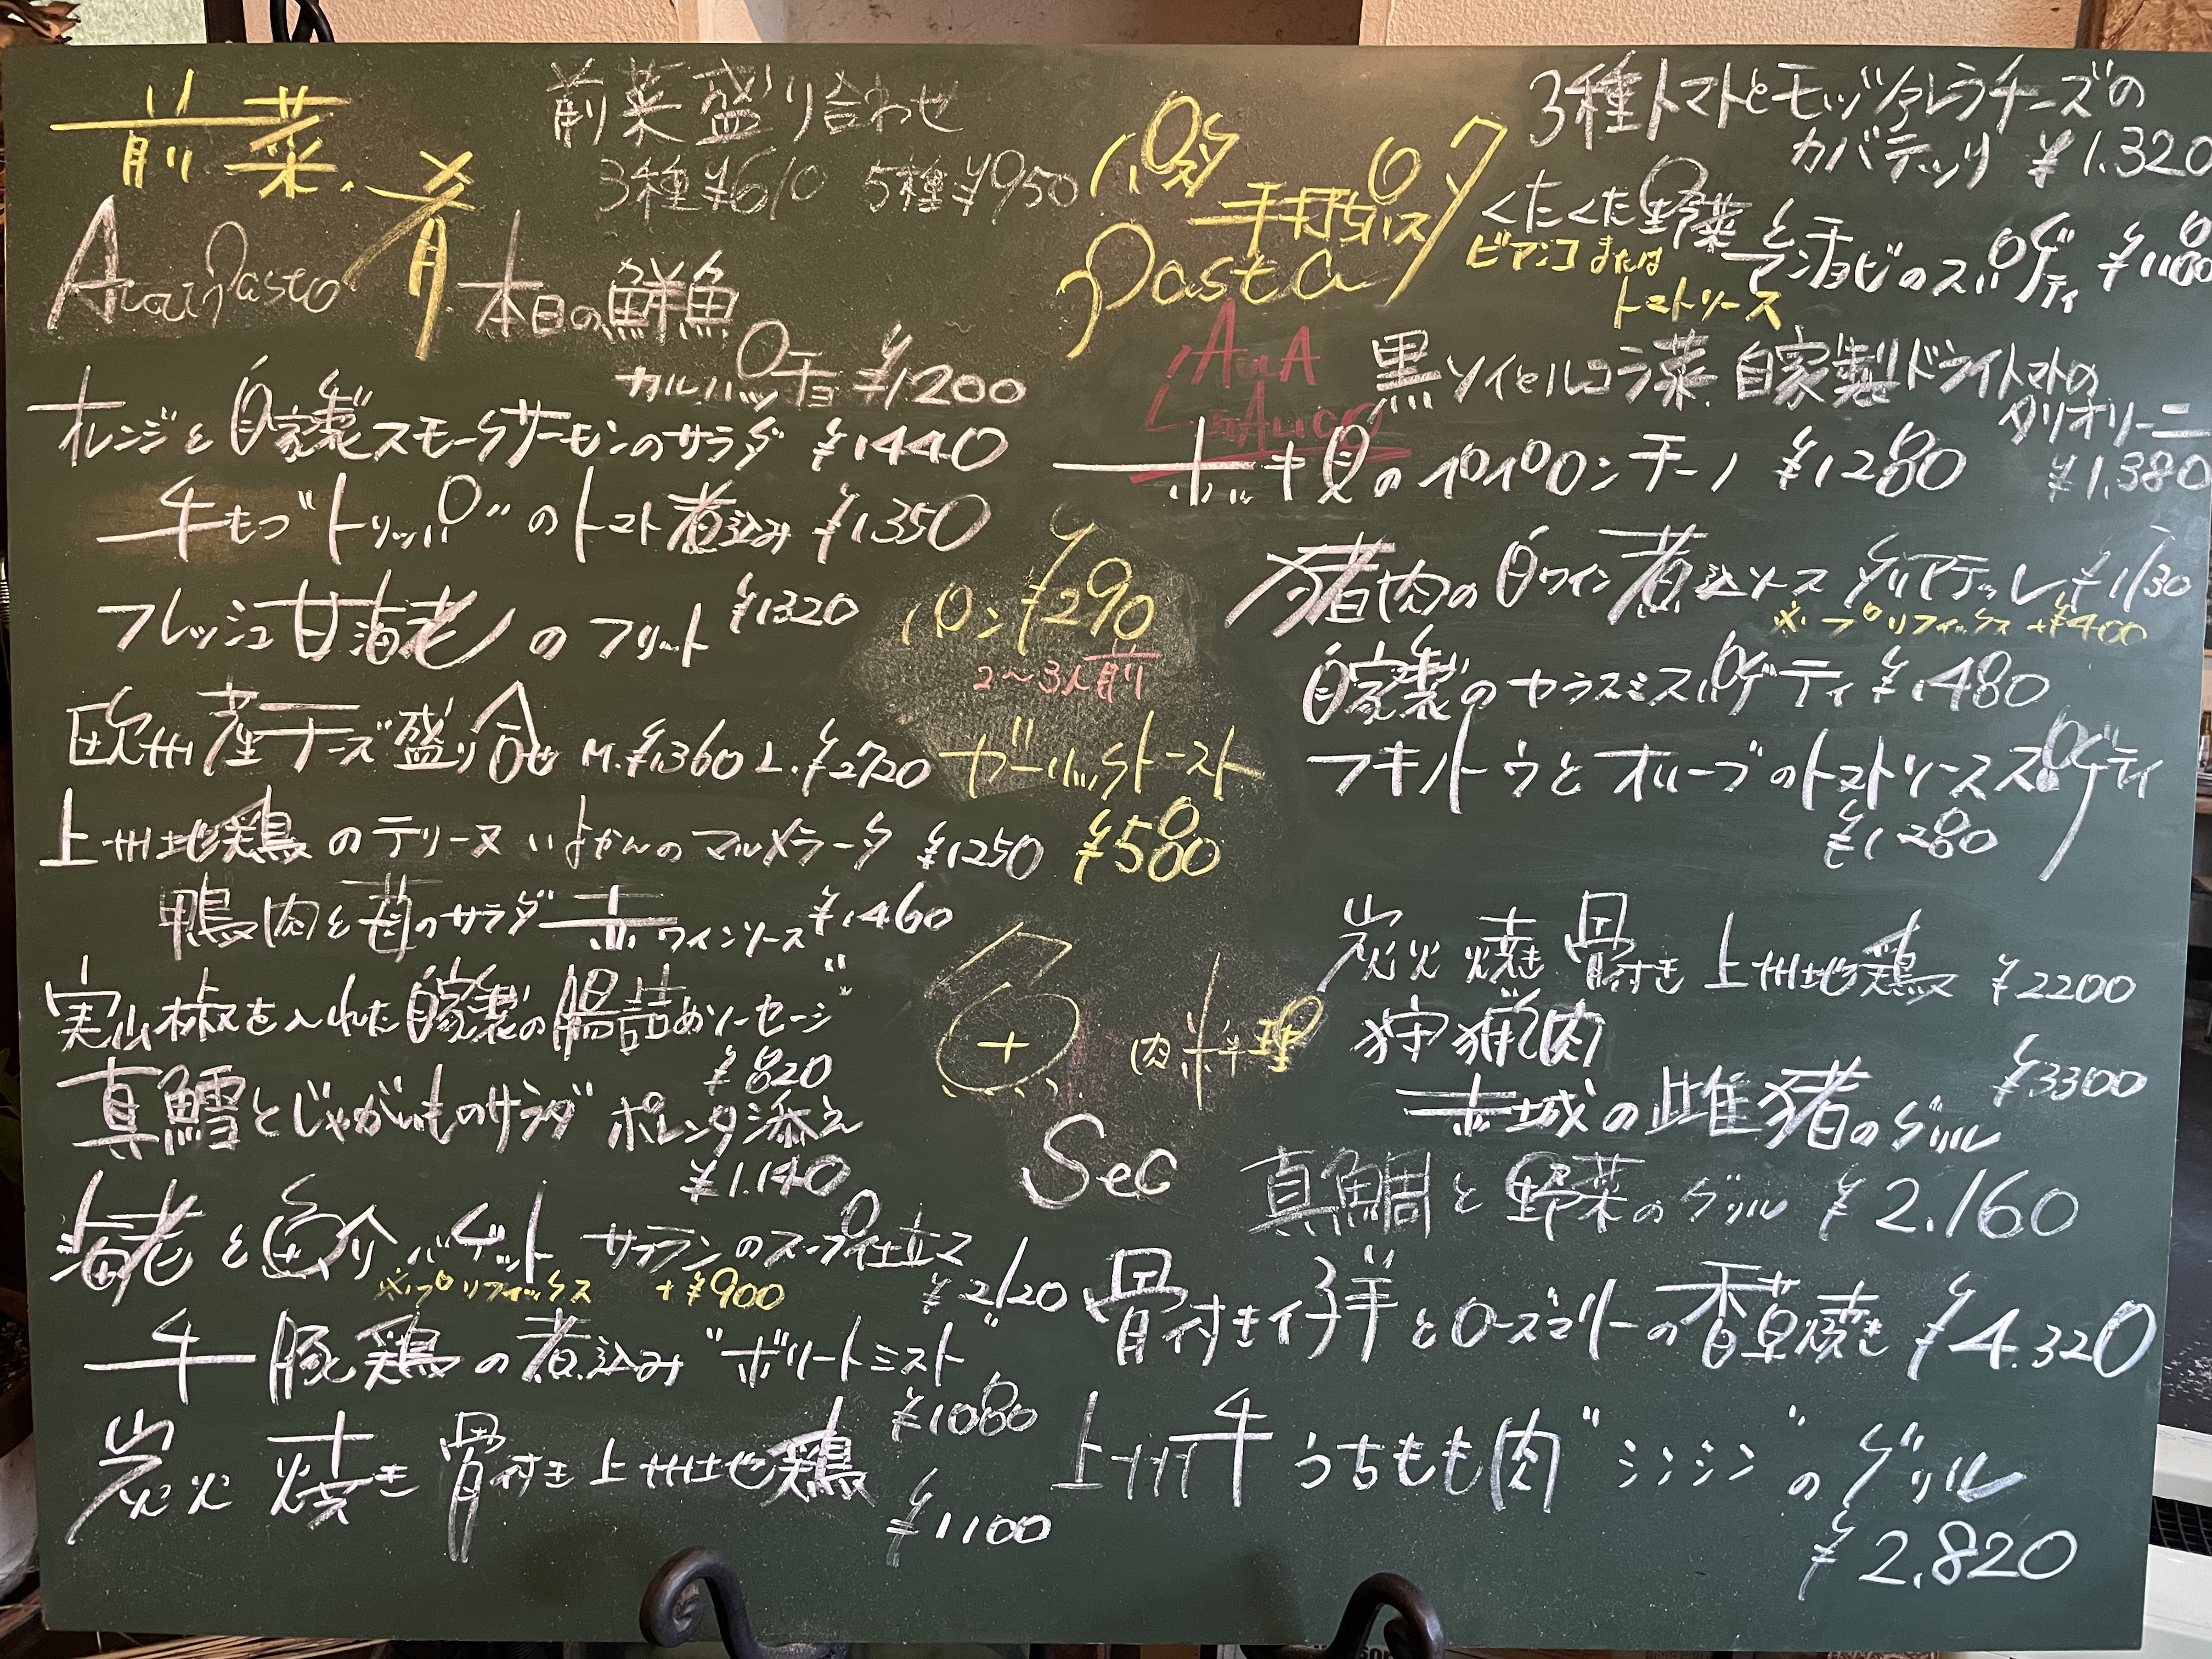 前菜.肴
前菜盛り合わせ
3種¥610 5種¥950
本日の鮮魚
カルパッチョ ¥1200
オレンジと自家製スモークサーモンのサラダ ¥1440
牛もつ"トリッパ"のトマト煮込み ¥1350
フレッシュ甘海老のフリット ¥1320
欧州産チーズ盛り合せ M.¥1360 L.¥2720
上州地鶏のテリーヌ いよかんのマルメラータ ¥1250
鴨肉と苺のサラダ 赤ワインソース ¥1460
実山椒を入れた自家製の腸詰め"ソーセージ"
¥820
真鱈とじゃがいものサラダ ポレンタ添え
¥1.140
海老と魚介 バゲット サフランのスープ仕立て
※プリフィックス +¥900 ¥2120
牛豚鶏の煮込み"ボリートミスト"
¥1080
炭火焼き骨付き上州地鶏
¥1100
パン ¥290
2〜3人前
ガーリックトースト
¥580
パスタ
手打ちパスタ
Pasta
3種トマトとモッツァレラチーズの
カバテッリ ¥1.320
くたくた野菜とアンチョビのスパゲティ ¥1180
ビアンコまたは
トマトソース
黒ソイとルコラ菜.自家製ドライトマトの
タリオリーニ
¥1.380
ホッキ貝のペペロンチーノ ¥1280
猪肉の白ワイン煮込ソース タリアテッレ ¥1130
※プリフィックス +¥400
自家製のカラスミスパゲティ ¥1480
フキノトウとオリーブのトマトソーススパゲティ
¥1280
魚
肉料理
Sec
炭火焼き骨付き上州地鶏 ¥2200
狩猟肉
赤城の雌猪のグリル ¥3300
真鯛と野菜のグリル ¥2.160
骨付き仔羊とローズマリーの香草焼き ¥4.320
上州牛うちもも肉"シンシン"のグリル
¥2.820